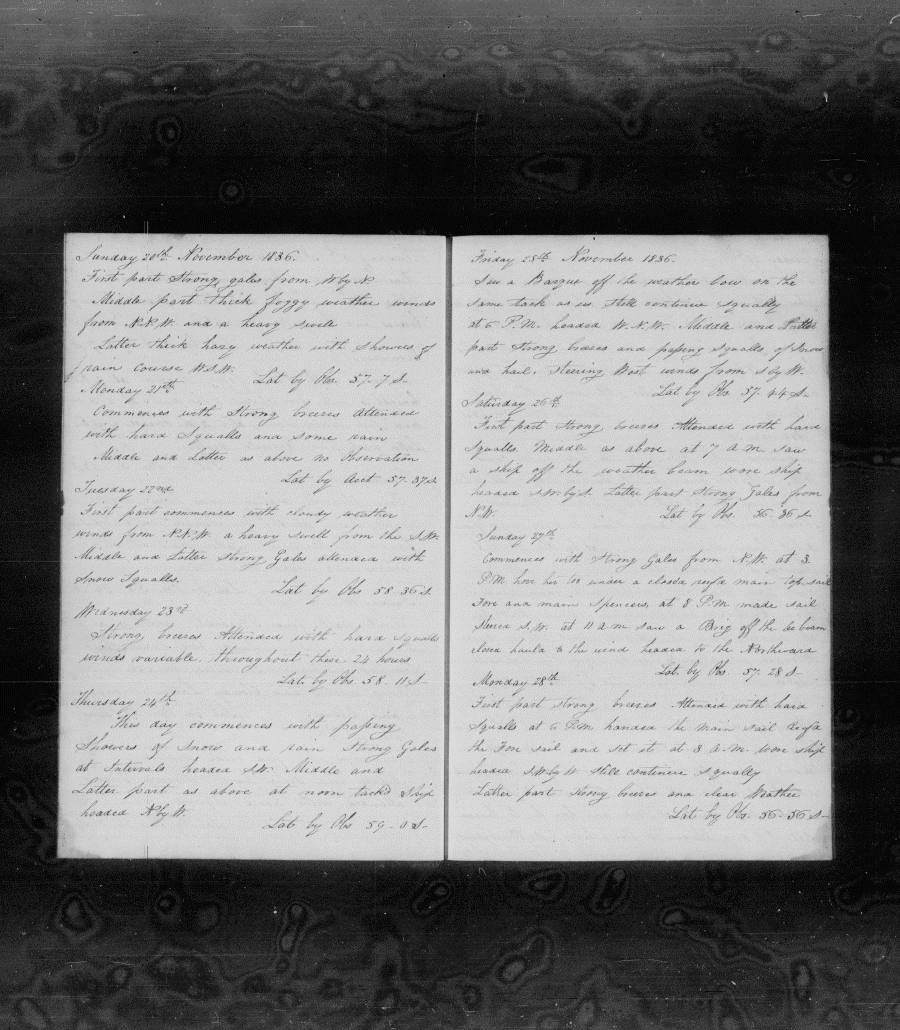 Sunday 20th November 1836.
First part Strong gales from W by N
Middle part thick foggy weather winds
from N.N.W. and a heavy swell
Latter thick hazy weather with showers of
rain course W.S.W. Lat by Obs. 57. 7 S.
Monday 21st
Commences with Strong breezes attended
with hard Squalls and some rain
Middle and Latter as above no Observation
Lat by Acct 57. 37 S.
Tuesday 22nd
First part commences with cloudy weather
winds from N.N.W a heavy swell from the S.W.
Middle and Latter Strong Gales attended with
Snow Squalls.
Lat by Obs 58. 36 S.
Wednesday 23rd
Strong breezes Attended with hard Squalls
winds variable. throughout these 24 hours
Lat. by Obs. 58. 11 S.
Thursday 24th
This day commences with passing
Showers of Snow and rain Strong Gales
at Intervals headed S.W. Middle and
Latter part as above at noon tack'd Ship
headed N by W.
Lat by Obs 59 - 0 S.
Friday 25th November 1836.
Saw a Barque off the weather bow on the
same tack as us Still continue Squally
at 6 P.M. headed W.N.W. Middle and Latter
part Strong breezes and passing Squalls of Snow
and hail. Steering West winds from S by W.
Lat by Obs. 57. 44 S.
Saturday 26th
First part Strong breezes Attended with hard
Squalls. Middle as above at 7 A.M. saw
a ship off the weather beam wore ship
headed S.W. by S. Latter part Strong Gales from
N.W. Lat by Obs. 56 36 S
Sunday 27th
Commences with Strong Gales from N.W. at 3
P.M. hove her too under a closed reef'd main top sail
Fore and main Spencers, at 8 P.M. made sail
Steered S.W. at 11 A.M. saw a Brig off the lee beam
close hauld to the wind headed to the Northward
Lat. by Obs. 57. 28 S.
Monday 28th
First part strong breezes Attended with hard
Squalls at 6 P.M. handed the main sail Reef'd
the Fore sail and set it at 8 A.M. wore ship
headed S.W by W Still continue Squally
Latter part Strong breezes and clear Weather
Lat by Obs. 56 - 56 S